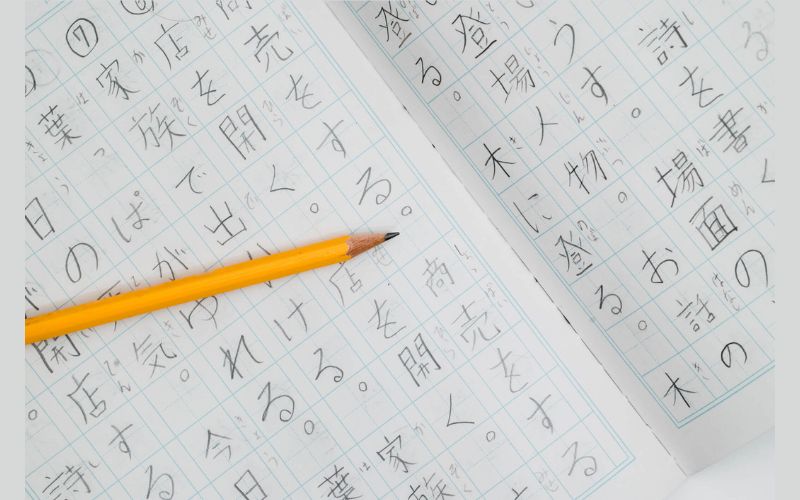 詩を書く
うす。場面の
登場人物。お話の
登る。木に登る。木
売をする。商売をする
店を開く。店を開く。
⑦家族で出かける。家族
葉っぱがゆれる。葉
日の天気。今日
開店する
詩